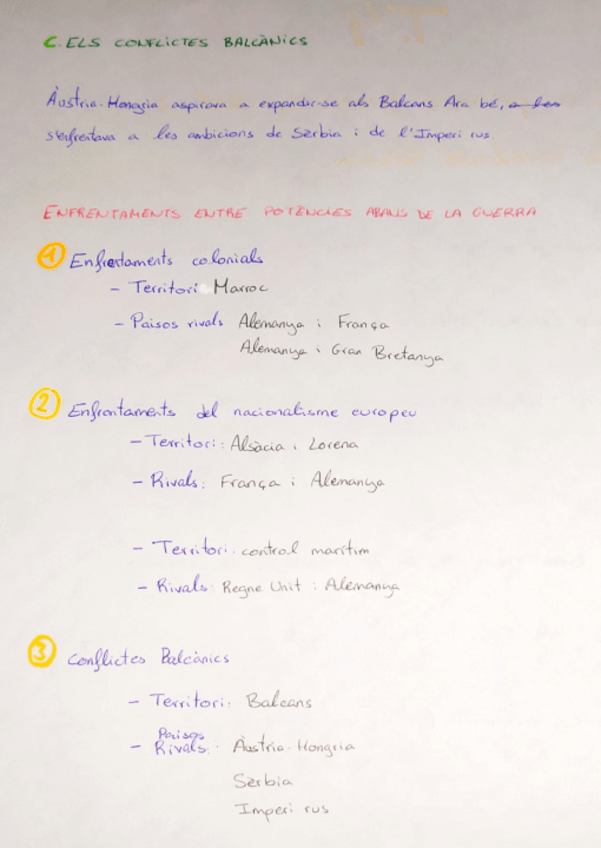 C. ELS CONFLICTES BALCÀNICS
Àustria-Hongria aspirava a expandir-se als Balcans Ara bé, a les
s'enfrentava a les ambicions de Sèrbia i de l'Imperi rus
ENFRENTAMENTS ENTRE POTÈNCIES ABANS DE LA GUERRA
1 Enfrentaments colonials
- Territori: Marroc
- Països rivals Alemanya i França
Alemanya i Gran Bretanya
2 Enfrontaments del nacionalisme europeu
- Territori: Alsàcia i Lorena
- Rivals: França i Alemanya
- Territori: control marítim
- Rivals: Regne Unit i Alemanya
3 Conflictes Balcànics
- Territori: Balcans
Països
- Rivals: Àustria-Hongria
Sèrbia
Imperi rus